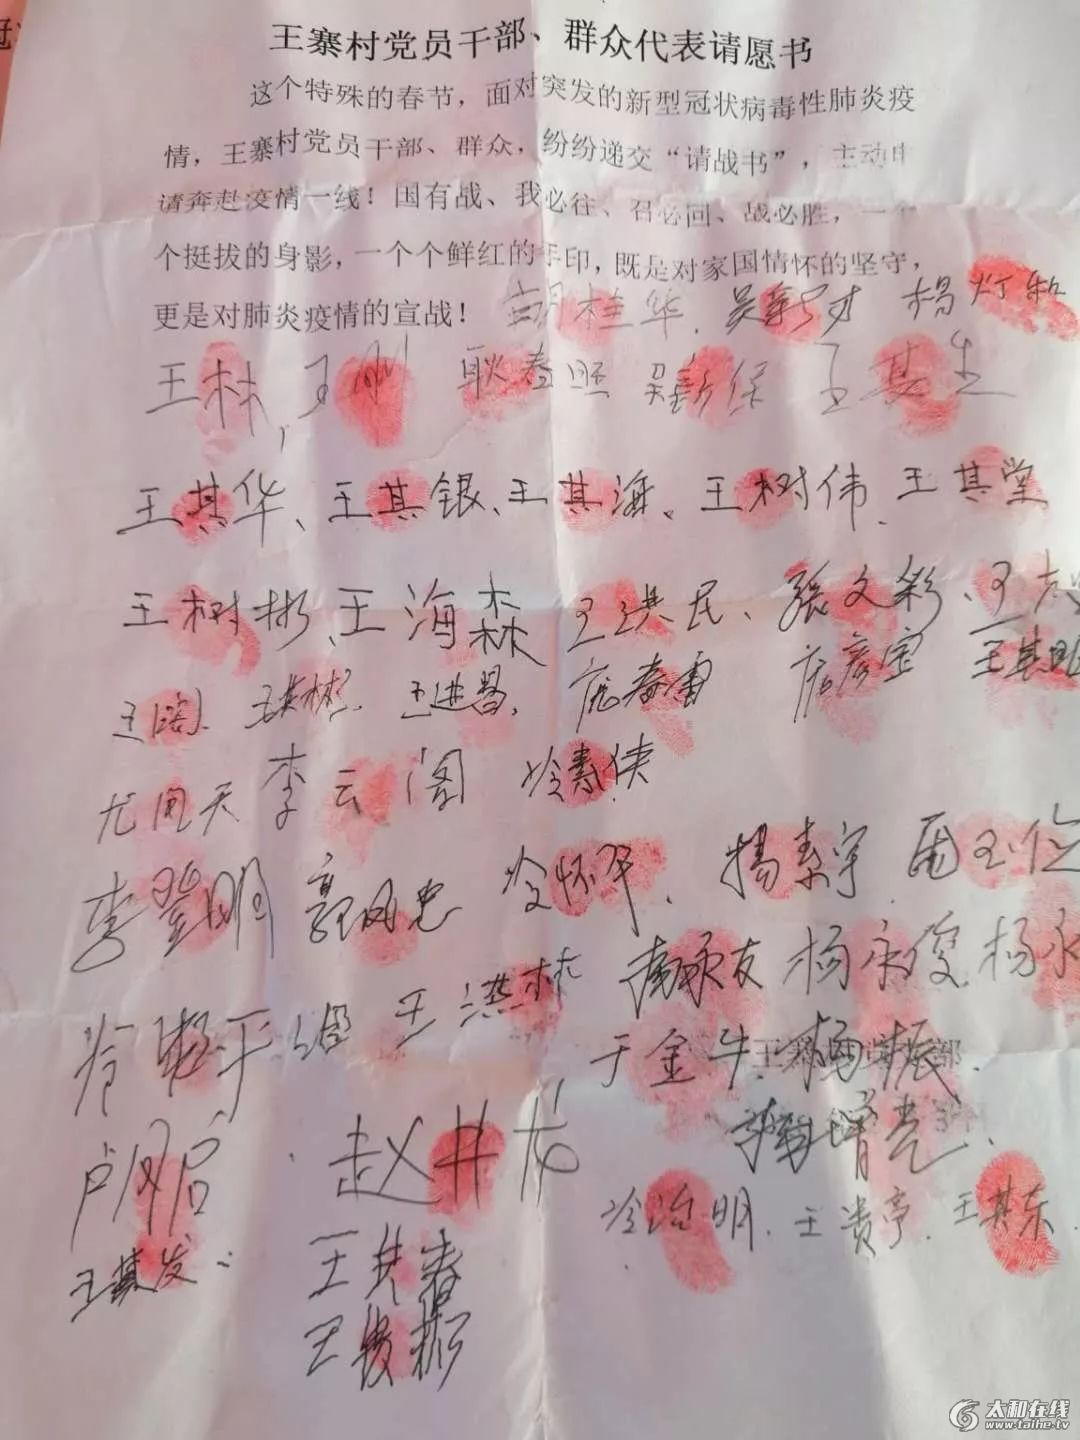 王寨村党员干部、群众代表请愿书
这个特殊的春节，面对突发的新型冠状病毒性肺炎疫
情，王寨村党员干部、群众，纷纷递交“请战书”，主动申
请奔赴疫情一线！国有战、我必往、召必回、战必胜，一个
个挺拔的身影，一个个鲜红的手印，既是对家国情怀的坚守，
更是对肺炎疫情的宣战！
胡桂华、吴新才 杨灯和
王林、王 耿春 王其生
王其华、王其银、王其海、王树伟、王其堂
王树彬、王海森 王洪民、張文彩、王志
王阔、王其彬、王进昌、庞春雷 庞彦宝 王其明
尤闯天 李云阁 冷素侠
李登明 郭凤忠 冷怀平、杨素宇
王洪林 南永友 杨永俊 杨永
于金牛、杨振、
王寨村党支部
卢凤启、赵井龙 增亮、
冷治明、王贵亭、王其东
王其发、王其春
王俊彬
太和在线
www.taihe.tv